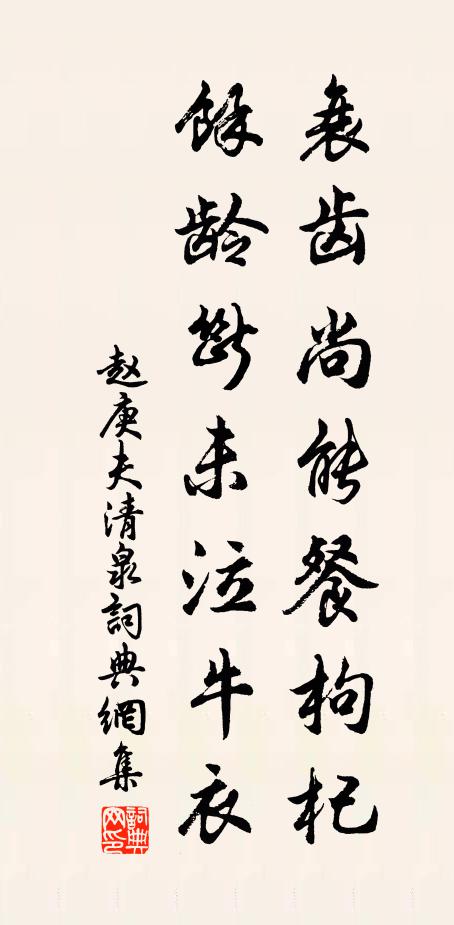 衰齿尚能餐枸杞
餘龄断未泣牛衣
赵庚夫清泉詞典網集
詞典网印